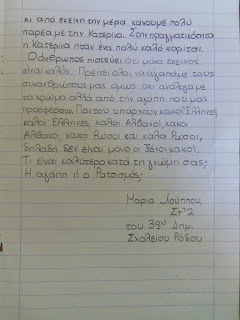 κι από εκείνη την μέρα κάνουμε πολύ
παρέα με την Κατερίνα. Στην πραγματικότητα
η Κατερίνα ήταν ένα πολύ καλό κορίτσι.
Ο άνθρωπος πιστεύει ότι μόνο εκείνος
είναι καλός. Πρέπει όλοι να αγαπάμε τους
συνανθρώπους μας όμως όχι ανάλογα με
το χρώμα αλλά από την αγάπη που μας
προσφέρουν. Παντού υπάρχουν κακοί Έλληνες
καλοί Έλληνες, καλοί Αλβανοί, κακοί
Αλβανοί, κακοί Ρώσοι και καλοί Ρώσοι,
δηλαδή δεν είναι μόνο οι ξένοι κακοί.
Τι είναι καλύτερο κατά τη γνώμη σας;
Η αγάπη ή ο Ρατσισμός;
Μαρία Λούππου
Στ'2
του 3ου Δημ.
Σχολείου Ρόδου